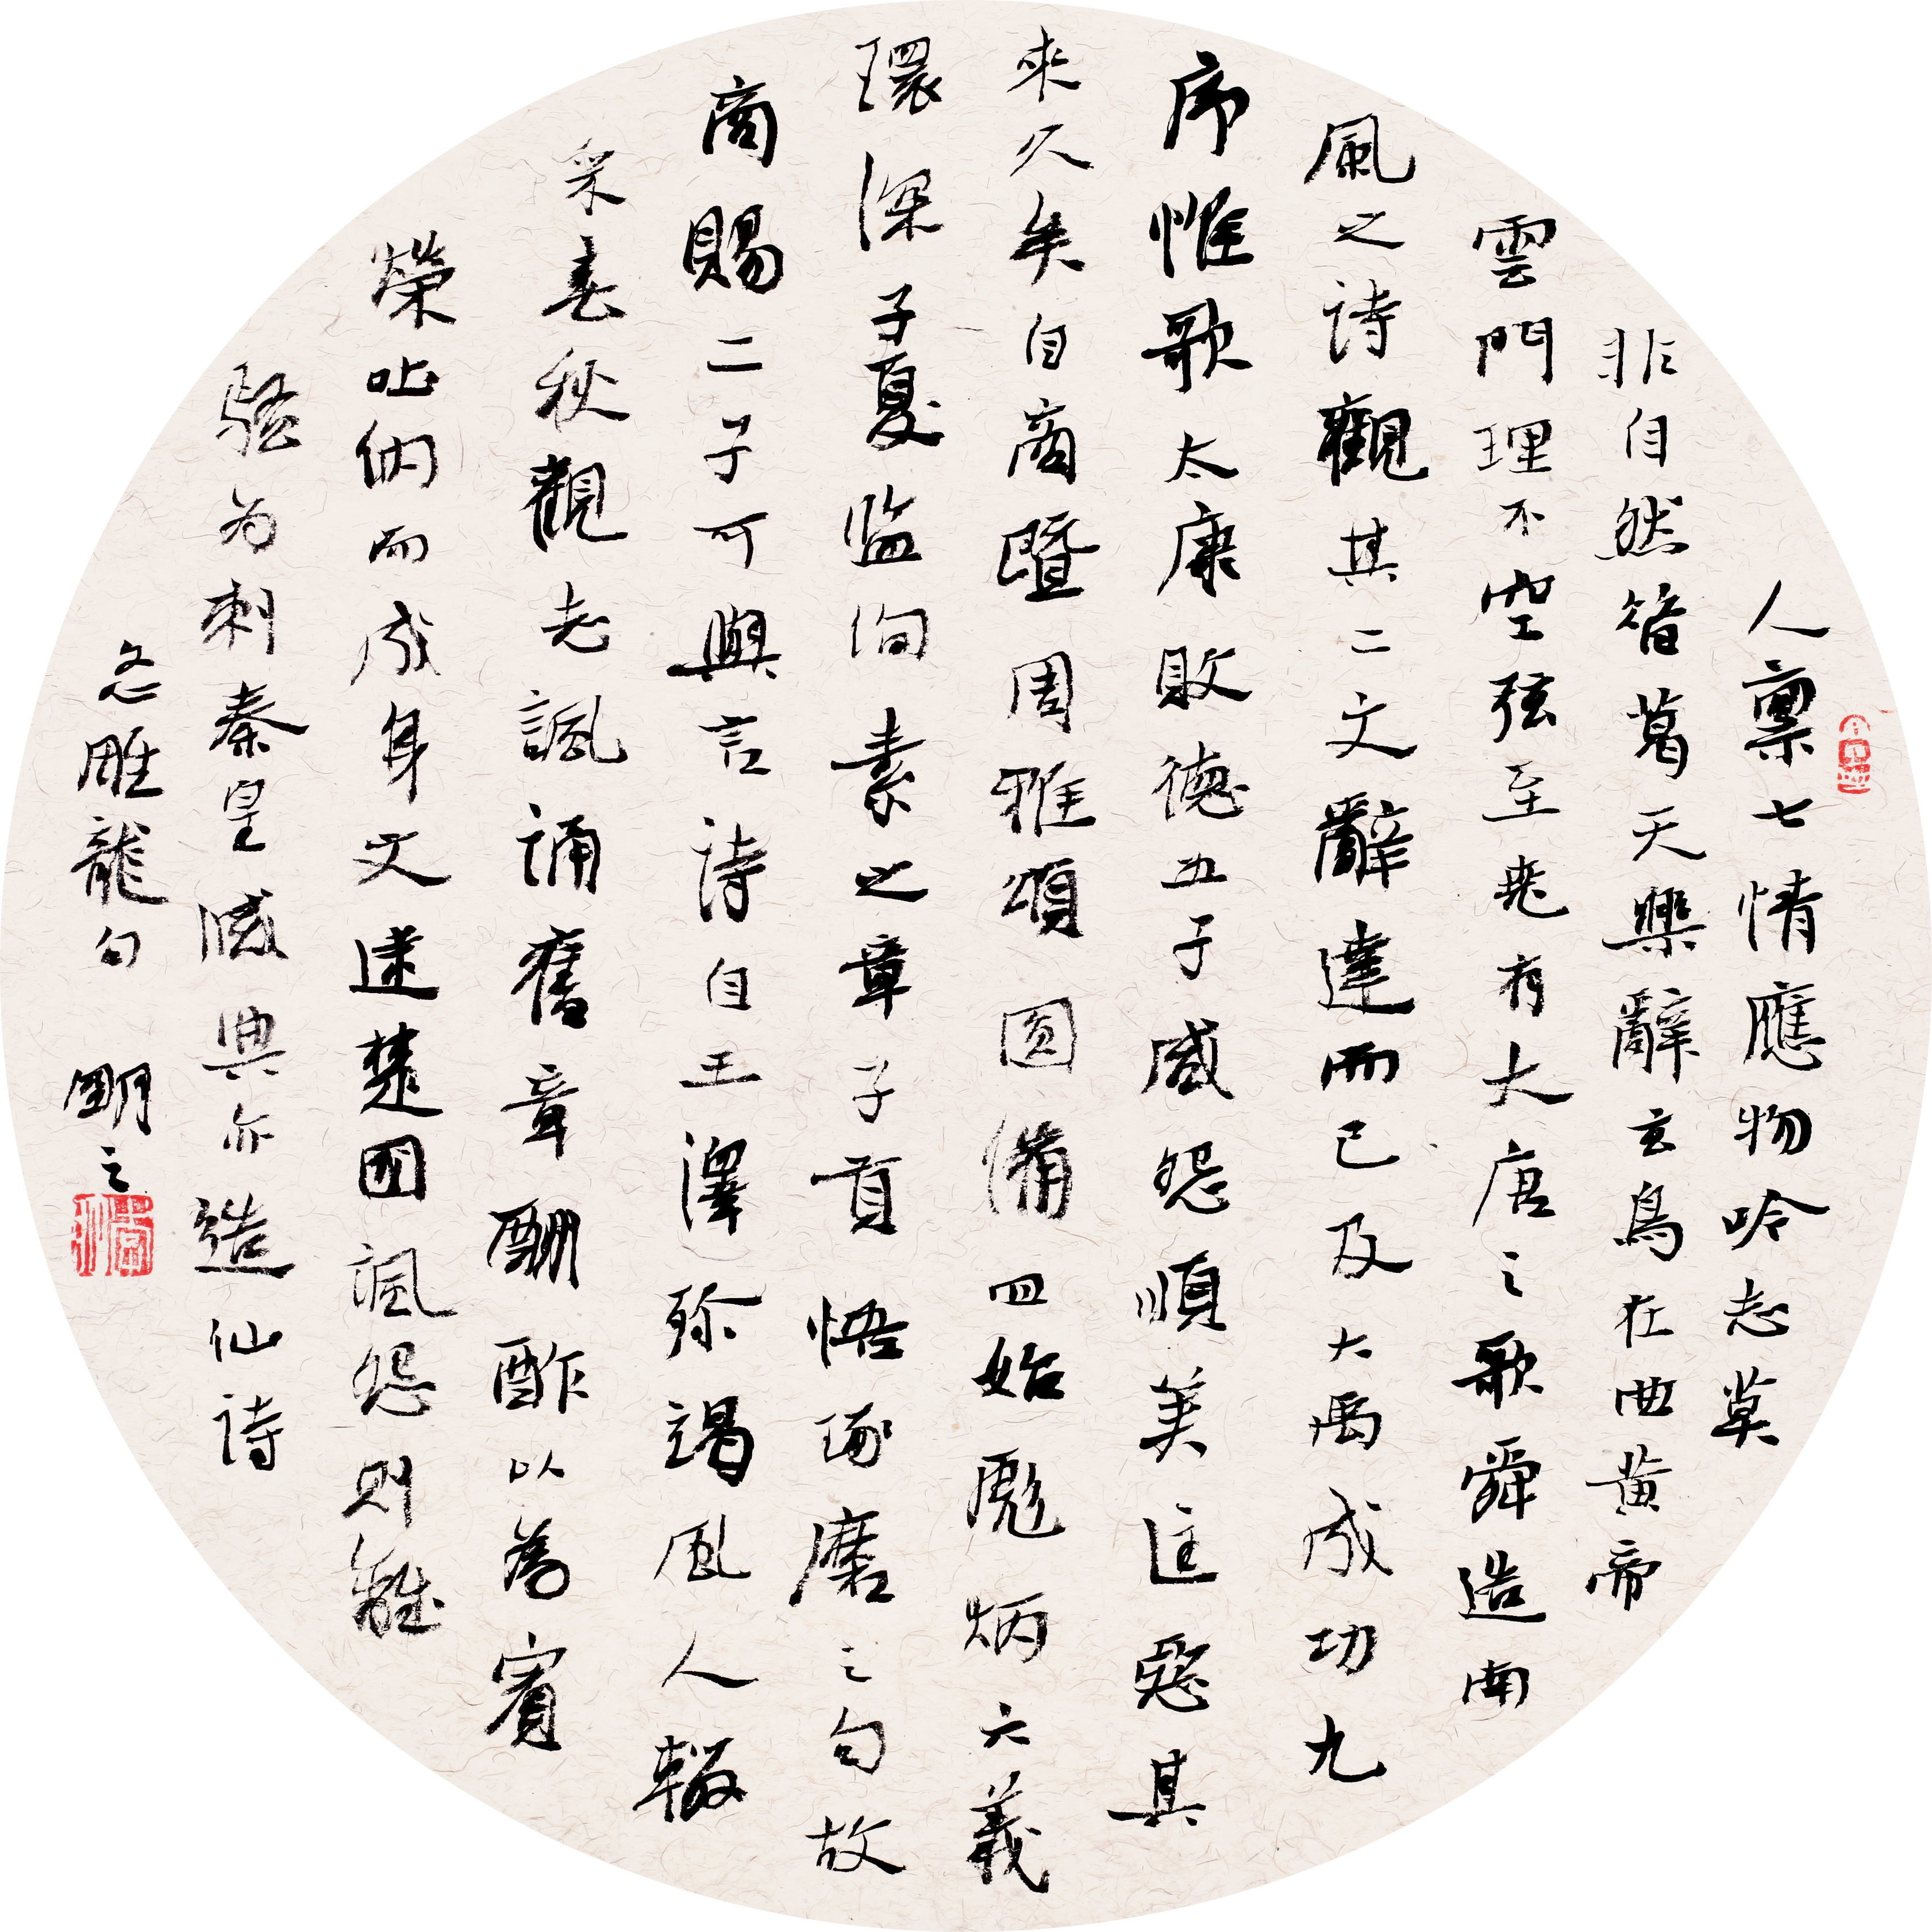 人禀七情應物吟志莫
非自然昔葛天樂辭玄鳥在曲黄帝
雲門理不空弦至堯有大唐之歌舜造南
風之诗觀其二文辭達而已及大禹成功九
序惟歌太康敗德五子感怨順美匡惡其
來久矣自商暨周雅頌圆備四始彪炳六義
環深子夏监绚素之章子貢悟琢磨之句故
商賜二子可與言诗自王澤殄竭風人輟
采春秋觀志諷诵舊章酬酢以為賓
榮吐纳而成身文逮楚国諷怨则離
骚为刺秦皇滅典亦造仙诗
雕龍句 明之